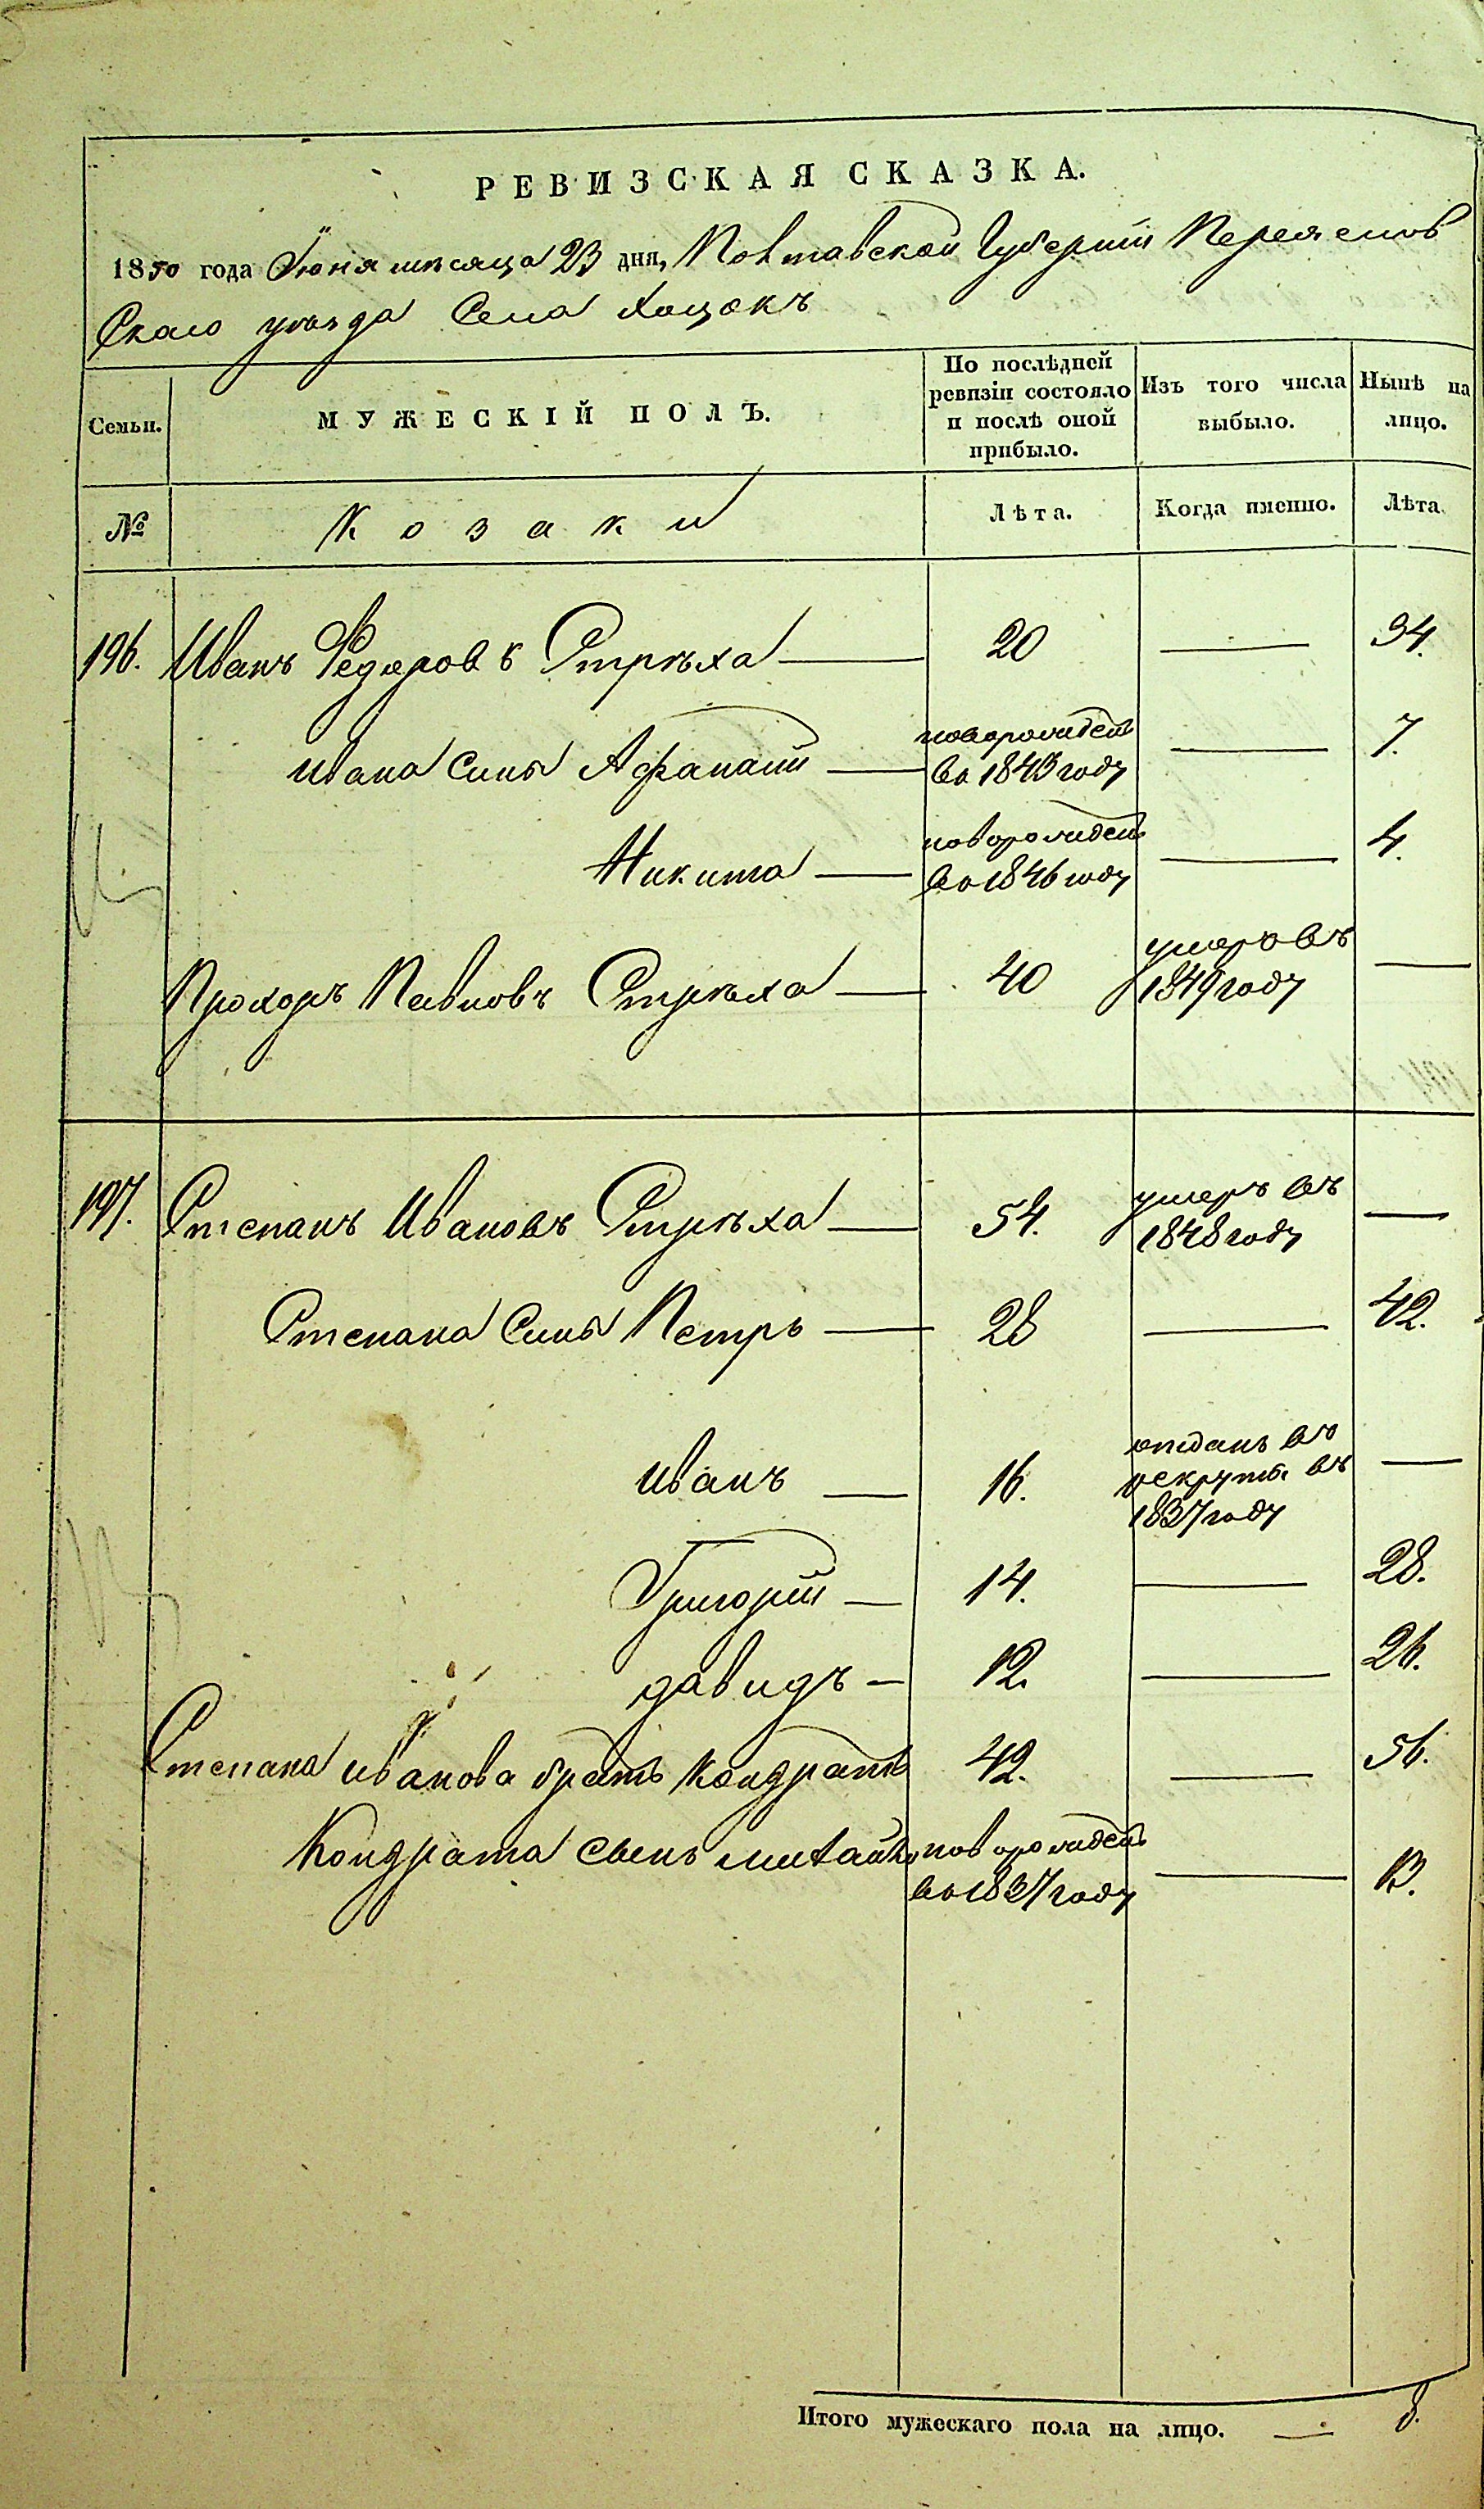 РЕВИЗСКАЯ СКАЗКА.
1850 года Іюня мѣсяца 23 дня, Полтавской Губерніи Переяслов
Скаго уѣзда Села Хоцокъ
Семьи. МУЖЕСКІЙ ПОЛЪ. По послѣдней ревизіи состояло и послѣ оной прибыло. Изъ того числа выбыло. Нынѣ на лицо.
№ Козаки Лѣта. Когда именно. Лѣта.
196. Иванъ Федоровъ Стрѣха 20 — 34.
Ивана Сынъ Афанасій новорожденъ во 1843 году — 7.
Никита новорожденъ во 1846 году — 4.
Прохоръ Павловъ Стрѣха 40 умеръ въ 1849 году —
197. Степанъ Ивановъ Стрѣха 54. умеръ въ 1848 году —
Степана Сынъ Петръ 28 — 42.
Иванъ 16. отданъ во рекруты въ 1837 году —
Григорій 14. — 28.
давидъ 12. — 26.
Степана Иванова братъ Кондратъ 42. — 56.
Кондрата сынъ михайло новорожденъ во 1837 году — 13.
Итого мужескаго пола на лицо. — 8.